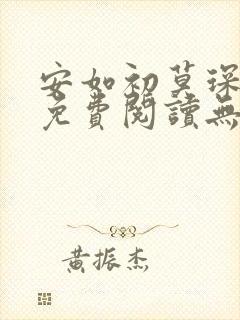 安如初莫琛
免費閱讀無
黃振杰